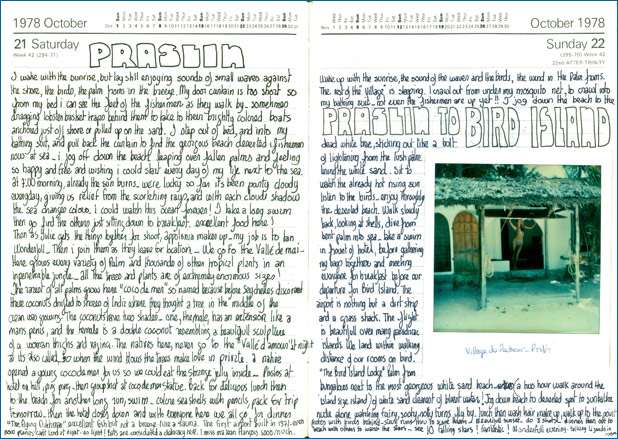 1978 October
21 Saturday
Week 42 (294-71)
PRASLIN
I wake with the sunrise, but lay still enjoying sounds of small waves against
the shore, the birds, the palm fronds in the breeze. My door curtain is too short so
from my bed i can see the feet of the fishermen as they walk by - sometimes
dragging lobster basket traps behind them to take to their brightly colored boats
anchored just off shore or pulled up on the sand. I slip out of bed, and into my
bathing suit, and pull back the curtain to find the gorgeous beach deserted, fishermen
now at sea - i jog off down the beach leaping over fallen palms and feeling
so happy and free and wishing i could start every day of my life next to the sea.
at 7.00 morning, already the sun burns. were lucky so far its been partly cloudy
everyday, giving us relief from the scorching rays, and with each clouds shadow
the sea changes colour. I could watch this ocean forever! I take a long swim
then go find the others just sitting down to breakfast. excellent food here!
Then as Julie gets the things together for shoot, applying makeup - my job is to tan
Wonderful! Then i join them as they leave for location - We go to the Vallé de mai -
Here grows every variety of Palm and thousands of other tropical plants in an
inpenetrable jungle - all the trees and plants are of extremely enormous sizes!
The rarest of all palms grows here "coco de mer" so named because before Seychelles discovered
these coconuts drifted to shores of India where they thought a tree in the middle of the
ocean was growing. The coconuts have two shapes - one, the male, has an extension like a
mans penis, and the female is a double coconut resembling a beautifull sculpture
of a woman thighs and vagina. The natives here, never go to the "Vallé d'amour" at night
as its also called, for when the wind blows the trees make love in private. a native
opened a young cocodemer for us so we could eat the strange jelly inside - Photos at
back for delicious lunch then
to the beach for another long sun, swim. colect sea shells with pencils, pack for trip
tomorrow. then the hotel closes down and with everyone here we all go for dinner
"The Flying Dutchman" excellent
October 1978
Sunday 22
(295-70) Week 42
22nd AFTER TRINITY
Wake up with the sunrise, the sound of the waves and the birds, the wind in the Palm fronds.
The rest of the village is sleeping. I crawl out from under my mosquito net, to crawl into
my bathing suit - not even the fishermen are up yet!! I jog down the beach to the
PRASLIN TO BIRD ISLAND
dead white tree, sticking out like a bolt
of lightening from the fresh palms
behind the white sand. Sit to
watch the already hot rising sun
listen to the birds. enjoy thoroughly
the deserted beach. Walk slowly
back, looking at shells, dive from
bent palm into sea. take a swim
in front of hotel, before gathering
my bags together and meeting
everyone for breakfast before our
departure for Bird Island. The
airport is nothing but a dirt strip
and a grass shack. The flight
is beautifull over many paradise
islands. We land within walking
distance of our rooms on Bird.
"The Bird Island Lodge" Palm frond
bungalows next to the most gorgeous white sand beach
island size island of white sand cleanest of bluest waters. Jog down beach to deserted spot to sunbathe
nude alone watching fairy, sooty, nolly terns fly by. lunch then wash hair make up, walk up to the point